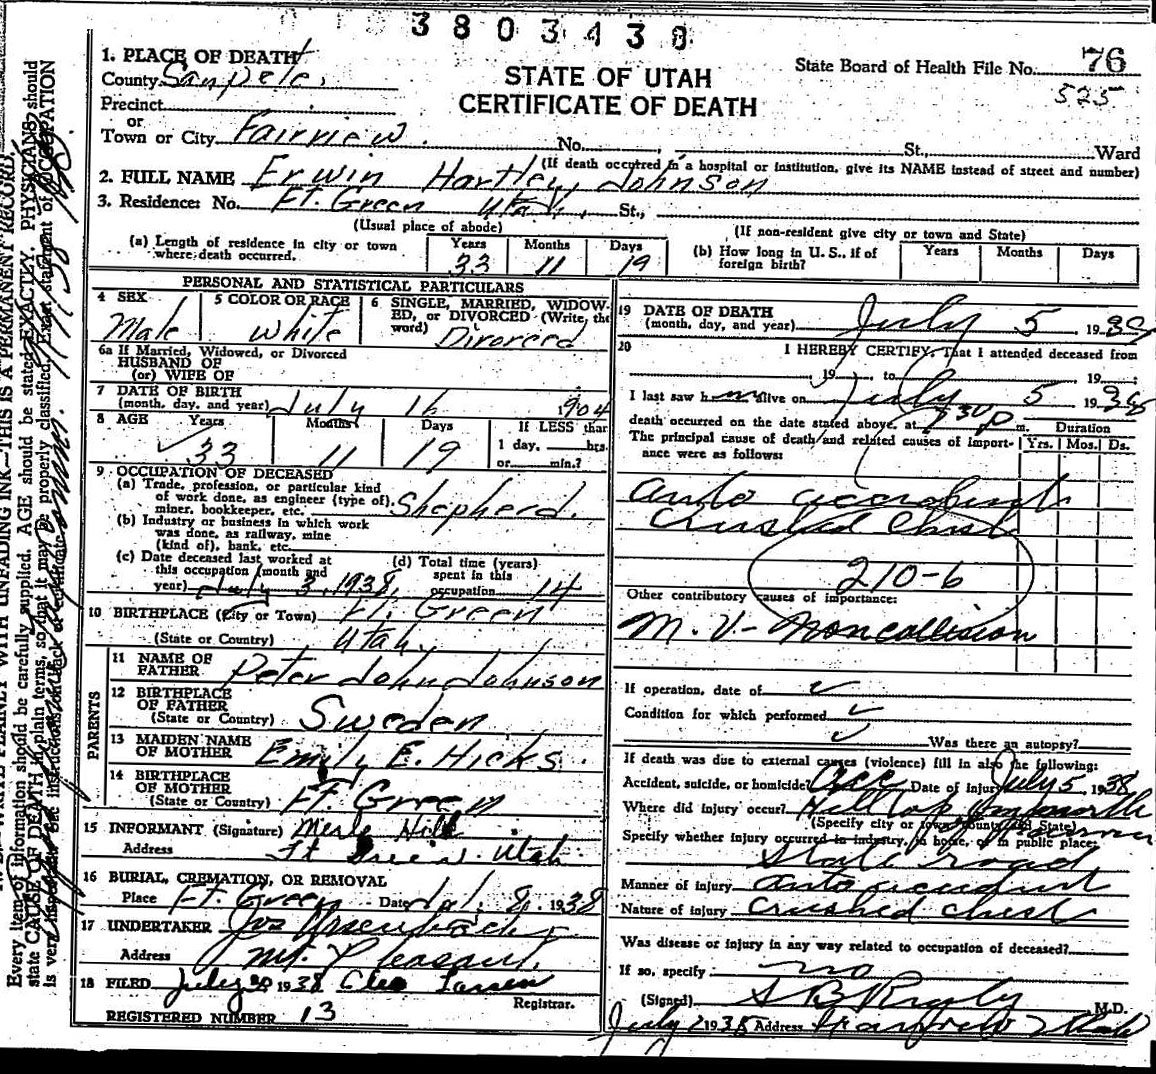 3803430
1. PLACE OF DEATH
County Sanpete.
STATE OF UTAH
CERTIFICATE OF DEATH
State Board of Health File No. 76
525
Precinct
or
Town or City Fairview. No. St., Ward
(If death occurred in a hospital or institution, give its NAME instead of street and number)
2. FULL NAME Erwin Hartley Johnson
3. Residence: No. Ft. Green Utah. St.,
(Usual place of abode) (If non-resident give city or town and State)
(a) Length of residence in city or town where death occurred. Years 33 Months 11 Days 19
(b) How long in U. S., if of foreign birth? Years Months Days
PERSONAL AND STATISTICAL PARTICULARS
4 SEX Male
5 COLOR OR RACE White
6 SINGLE, MARRIED, WIDOWED, or DIVORCED (Write, the word) Divorced
6a If Married, Widowed, or Divorced
HUSBAND OF
(or) WIFE OF
7 DATE OF BIRTH
(month, day, and year) July 16 1904
8 AGE Years 33 Months 11 Days 19 If LESS than
1 day, hrs.
or min.?
9 OCCUPATION OF DECEASED
(a) Trade, profession, or particular kind
of work done, as engineer (type of)
miner, bookkeeper, etc. Shepherd.
(b) Industry or business in which work
was done, as railway, mine
(kind of), bank, etc.
(c) Date deceased last worked at
this occupation (month and
year) July 3, 1938,
(d) Total time (years)
spent in this
occupation 14
10 BIRTHPLACE (City or Town) Ft. Green
(State or Country) Utah,
PARENTS
11 NAME OF
FATHER Peter John Johnson
12 BIRTHPLACE
OF FATHER
(State or Country) Sweden
13 MAIDEN NAME
OF MOTHER Emily E. Hicks
14 BIRTHPLACE
OF MOTHER
(State or Country) Ft. Green
15 INFORMANT (Signature) Merle
Address Ft Green. Utah
16 BURIAL, CREMATION, OR REMOVAL
Place Ft. Green Date 8, 1938
17 UNDERTAKER
Address Mt. Pleasant.
18 FILED July 1938 Cleo Larsen
Registrar.
REGISTERED NUMBER 13
19 DATE OF DEATH
(month, day, and year) July 5 1938
20 I HEREBY CERTIFY, That I attended deceased from
19 , to 19 ;
I last saw h im alive on July 5 1938
death occurred on the date stated above, at 730 p m. Duration
The principal cause of death and related causes of importance were as follows: Yrs. Mos. Ds.
auto accident
Crushed Chest
210-6
Other contributory causes of importance:
M. V- Noncollision
If operation, date of
Condition for which performed
Was there an autopsy?
If death was due to external causes (violence) fill in also the following:
Accident, suicide, or homicide? Acc Date of Injury July 5 1938
Where did injury occur? Hill top
(Specify city or town, county and State)
Specify whether injury occurred in industry, in home, or in public place.
State road
Manner of injury auto accident
Nature of injury crushed chest
Was disease or injury in any way related to occupation of deceased?
If so, specify no
(Signed) M.D.
July 1938 Address
Every item of information should be carefully supplied. AGE should be stated EXACTLY. PHYSICIANS should